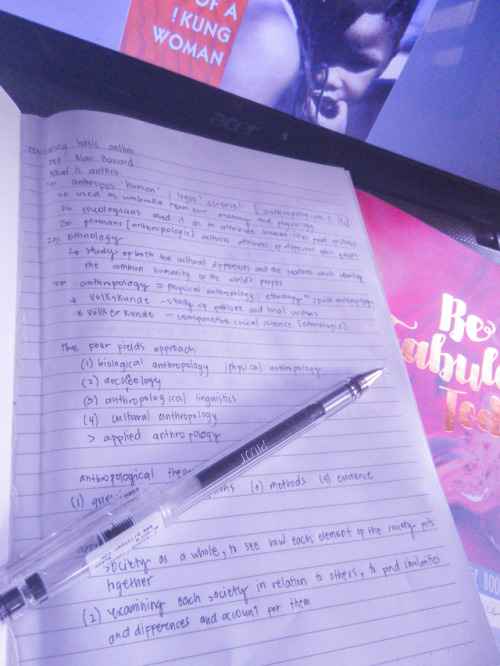 OF A
!KUNG
WOMAN
acer
revising basic anthro
ref. Alan Barnard
what is anthro
anthropos 'human' ; logos 'science'
used as umbrella term for anatomy and physiology
theologians used it as to attribute human-like
germans [anthropologie] cultural attributes of different ethnic groups
Ethnology
study of both the cultural differences and the features which identify
the common humanity of the world's peoples
anthropology = physical anthropology ; ethnology = social anthropology
* Volkskunde - study of folklore and local customs
* Völkerkunde - comparative social science [ethnologie]
The four fields approach
(1) biological anthropology / physical anthropology
(2) archeology
(3) anthropological linguistics
(4) cultural anthropology
> applied anthropology
anthropological
(1) (3) methods (4) evidence
society as a whole, to see how each element of the society
together
(2) examining each society in relation to others, to find similarities
and differences and account for them
PILOT
Be